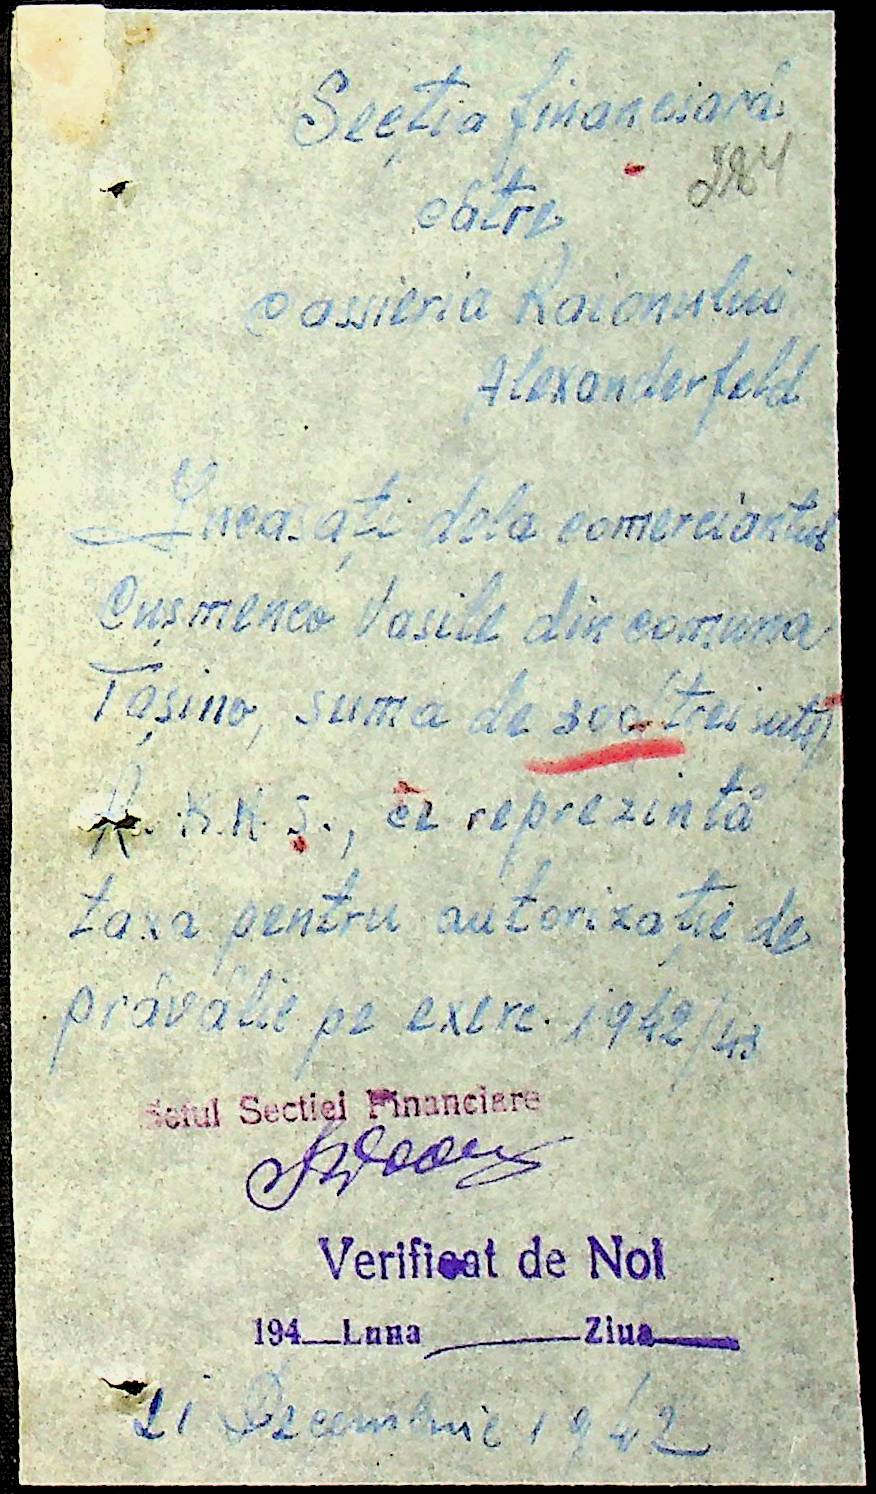 Secția financiară
284
către
Cassieria Raionului
Alexanderfeld
Încasați dela comerciantul
Cușmenco Vasile din comuna
Tașino, suma de 300 (treisute)
R.K.K.S., ce reprezintă
taxa pentru autorizație de
prăvălie pe exerc. 1942/43
Șeful Sectiei Financiare
Verificat de Noi
194 Luna Ziua
21 Decembrie 1942